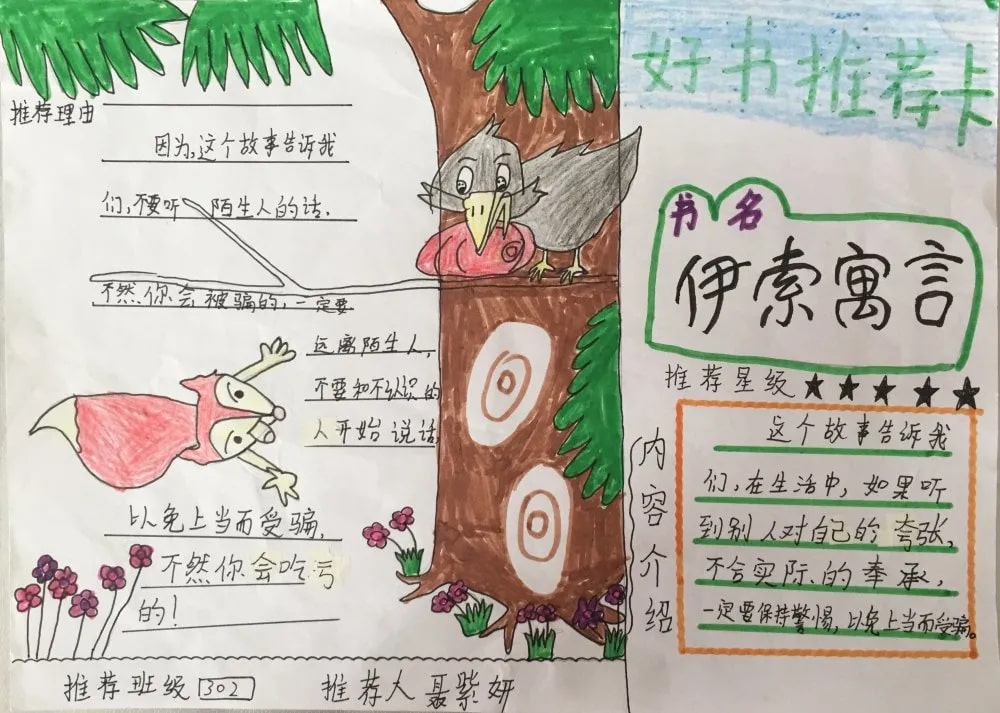 好书推荐卡
书名
伊索寓言
推荐星级★★★★★
内容介绍
这个故事告诉我
们,在生活中,如果听
到别人对自己的夸张,
不合实际的奉承,
一定要保持警惕,以免上当而受骗。
推荐理由
因为,这个故事告诉我
们,不要听陌生人的话.
不然你会被骗的,一定要
远离陌生人,
不要和不认识的
人开始说话,
以免上当而受骗,
不然你会吃亏
的!
推荐班级302
推荐人聂紫妍